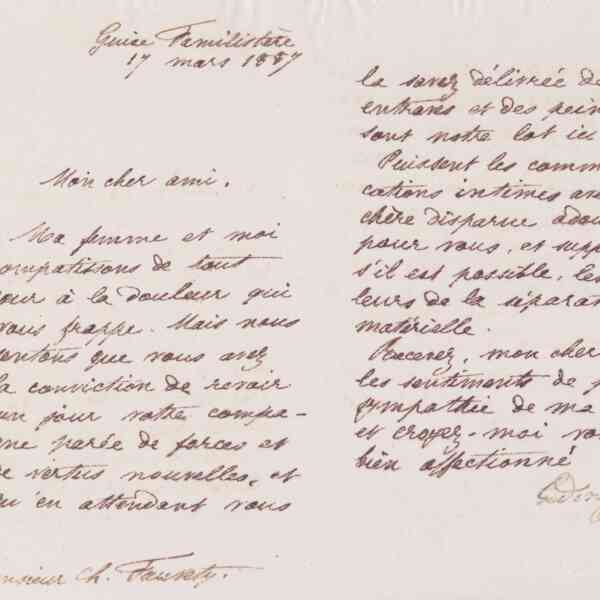 Guise Familistère
17 mars 1887
Mon cher ami.
Ma femme et moi
compatissons de tout
cœur à la douleur qui
vous frappe. Mais nous
sentons que vous avez
la conviction de revoir
un jour votre compa-
gne parée de forces et
de vertus nouvelles, et
qu'en attendant vous
Monsieur Ch. Fauvety.
la savez délivrée de
entraves et des pein
sont notre lot ici
Puissent les comm
cations intimes av
chère disparue adou
pour vous, et supp
s'il est possible, les
leurs de la séparat
matérielle.
Recevez, mon cher
les sentiments de p
sympathie de ma
et croyez-moi vo
bien affectionné
Godin